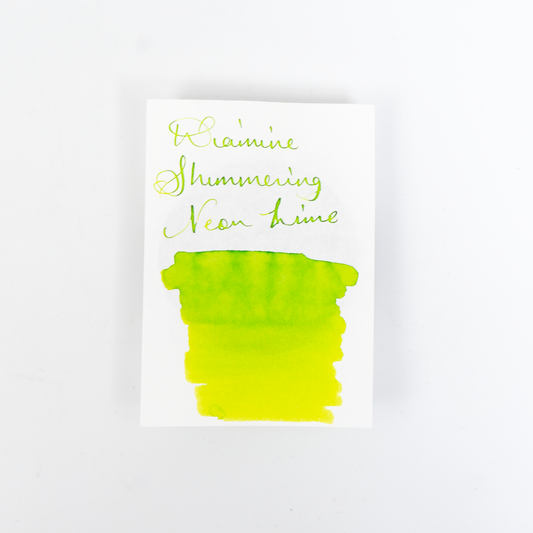 Diamine
Shimmering
Neon Lime